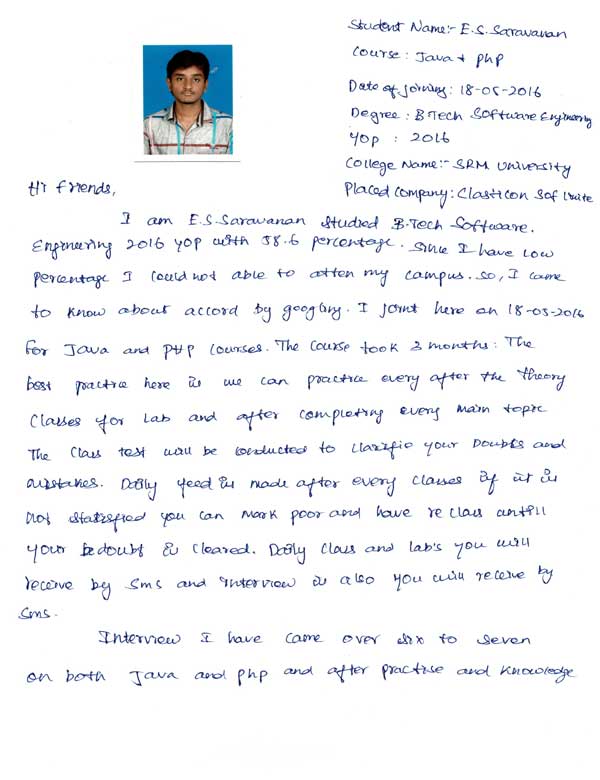 Student Name:- E.S.Saravanan
Course : Java + php
Date of joining: 18-05-2016
Degree : BTech Software Engineering
yop : 2016
College Name:- SRM University
Placed Company: Clasticon Sof Luite
Hi Friends,
I am E.S.Saravanan studied B.Tech Software.
Engineering 2016 yop with 58.6 percentage. Since I have low
percentage I could not able to atten my campus. so, I came
to know about accord by googling. I joint here on 18-05-2016
for Java and PHP courses. The course took 3 months: The
best practice here is we can practice every after the theory
classes for lab and after completing every main topic
The class test will be conducted to clarifie your Doubts and
mistakes. Daily feed is made after every classes if it is
not statisfied you can mark poor and have re class untill
your doubt is cleared. Daily class and lab's you will
receive by sms and interview is also you will receive by
sms.
Interview I have came over six to seven
on both Java and php and after practise and knowledge